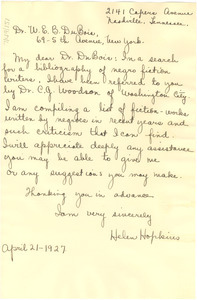 2141 Capers Avenue
Nashville, Tennessee.
Dr. W. E. B. DuBois,
69-5th Avenue, New York.
My dear Dr. DuBois; In a search
for a bibliography of negro fiction
writers, I have been referred to you
by Dr. C. G. Woodson of Washington City.
I am compiling a list of fiction-works
written by negroes in recent years and
such criticism that I can find.
I will appreciate deeply any assistance
you may be able to give me
or any suggestions you may make.
Thanking you in advance
I am very sincerely
Helen Hopkins
April 21-1927